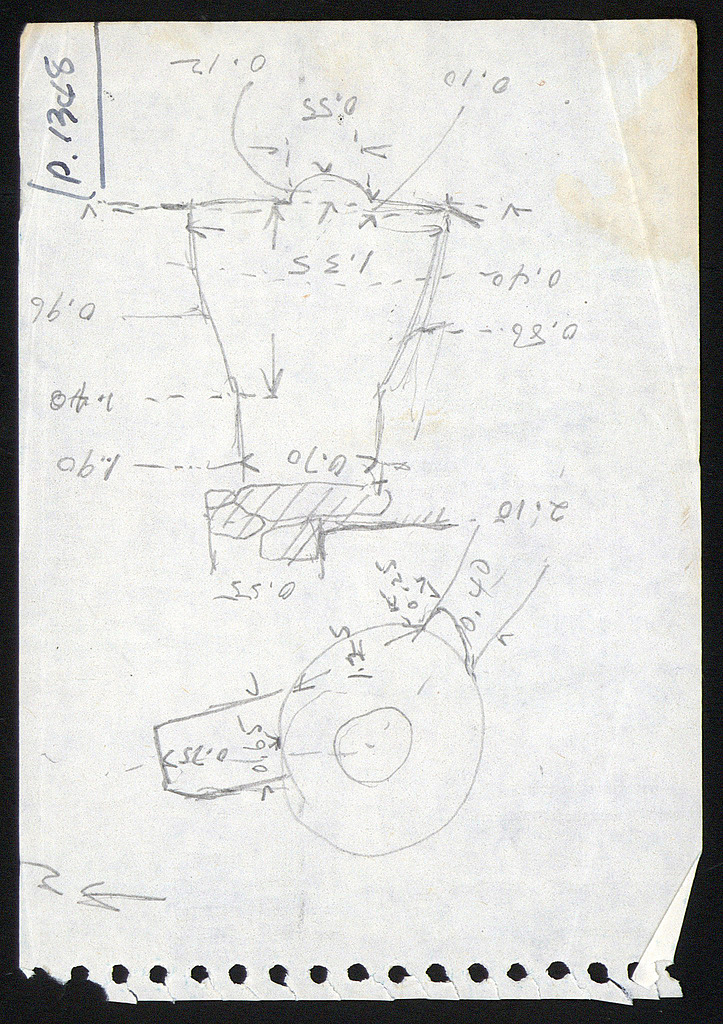 p. 1368
0.12
0.10
0.55
1.35
0.40
0.96
0.86
1.40
1.90
0.70
2.10
0.55
0.25
0.40
1.25
0.65
0.75
N